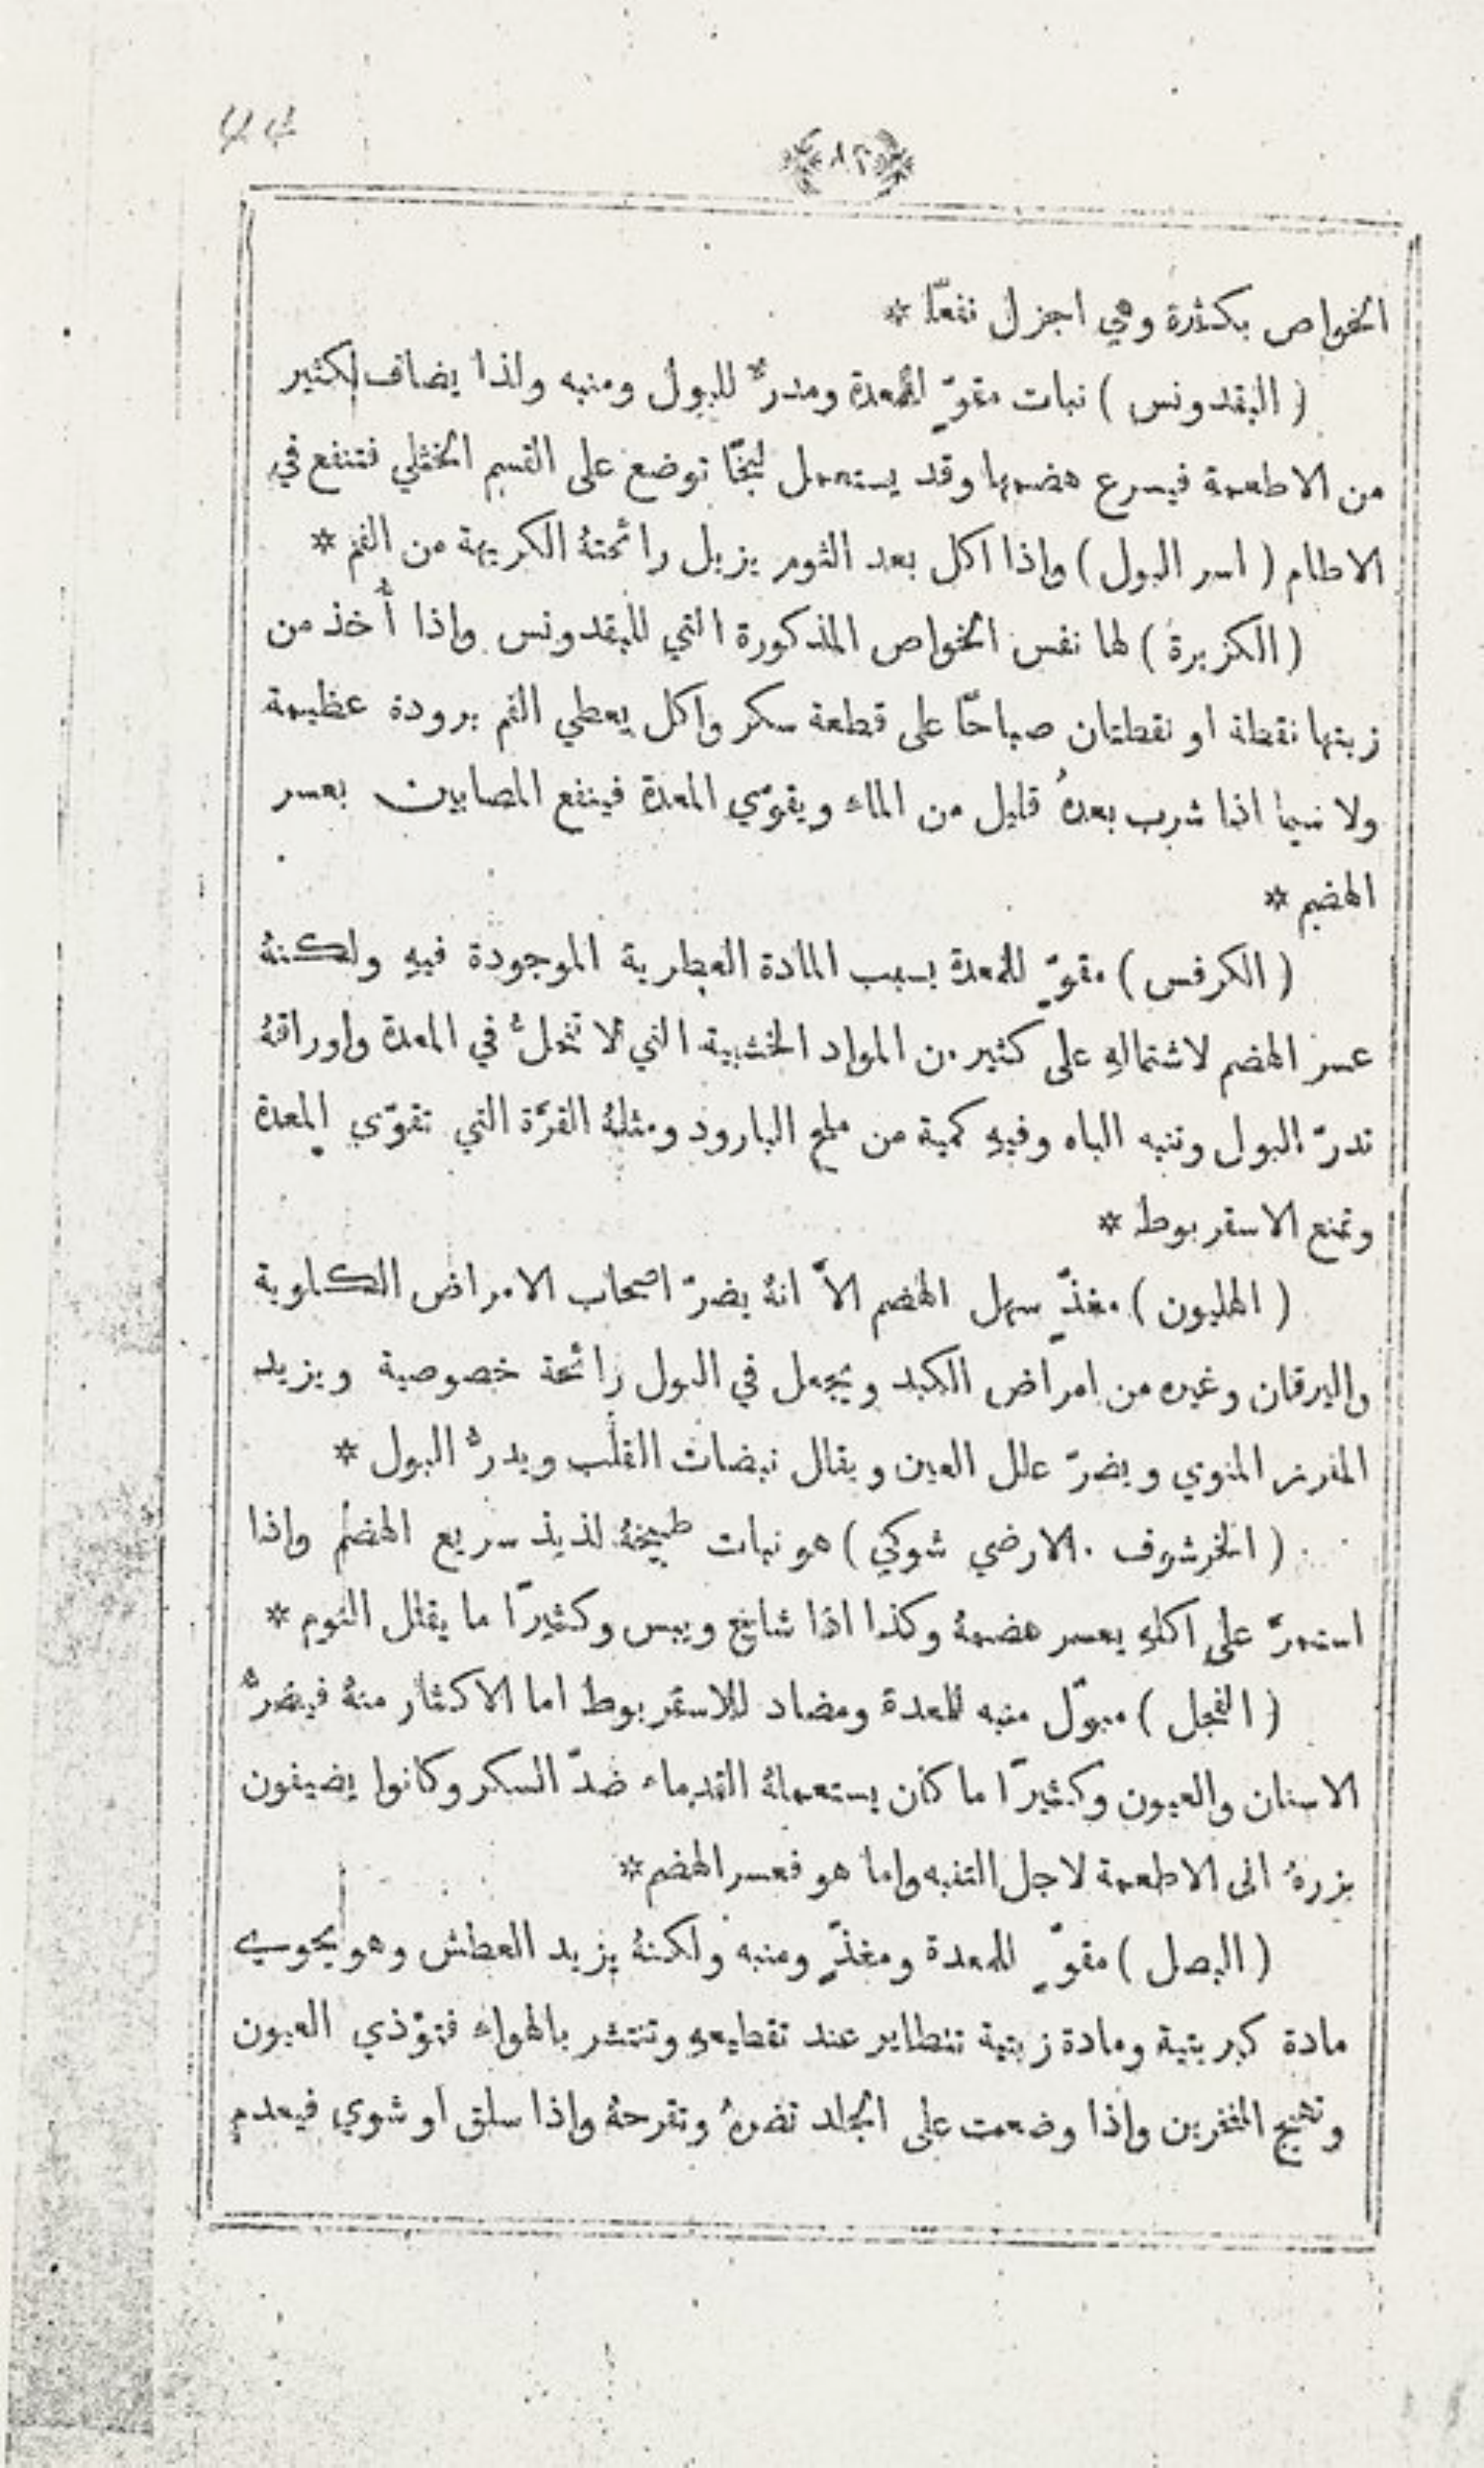 ٨٢
الخواص بكثرة وهي اجزل نفعًا *
( البقدونس ) نبات مقوٍّ للمعدة ومدرٌّ للبول ومنبه ولذا يضاف لكثير
من الاطعمة فيسرع هضمها وقد يستعمل لبخًا توضع على القسم الخثلي فتنفع في
الاطام ( اسر البول ) واذا اكل بعد الثوم يزيل رائحتهُ الكريهة من الفم *
( الكزبرة ) لها نفس الخواص المذكورة التي للبقدونس واذا أُخذ من
زيتها نقطة او نقطتان صباحًا على قطعة سكر واكل يعطي الفم برودة عظيمة
ولا سيما اذا شرب بعدهُ قليل من الماء ويقوّي المعدة فينفع المصابين بعسر
الهضم *
( الكرفس ) مقوٍّ للمعدة بسبب المادة العطرية الموجودة فيهِ ولكنهُ
عسر الهضم لاشتمالهِ على كثير من المواد الخشبية التي لا تنحلُّ في المعدة واوراقهُ
تدرّ البول وتنبه الباه وفيهِ كمية من ملح البارود ومثلهُ القرَّة التي تقوّي المعدة
وتمنع الاسقربوط *
( الهليون ) مغذٍّ سهل الهضم الاَّ انهُ يضرّ اصحاب الامراض الكلوية
واليرقان وغيره من امراض الكبد ويجعل في البول رائحة خصوصية ويزيد
المفرز المنوي ويضرّ علل العين ويقلل نبضات القلب ويدرُّ البول *
( الخرشوف . الارضي شوكي ) هو نبات طبيخهُ لذيذ سريع الهضم واذا
استمرَّ على اكلهِ يعسر هضمهُ وكذا اذا شاخ ويبس وكثيرًا ما يقلل النوم *
( الفجل ) مبوّل منبه للمعدة ومضاد للاسقربوط اما الاكثار منهُ فيضرُّ
الاسنان والعيون وكثيرًا ما كان يستعملهُ القدماء ضدّ السكر وكانوا يضيفون
بزرهُ الى الاطعمة لاجل التنبه واما هو فعسر الهضم *
( البصل ) مقوٍّ للمعدة ومغذٍّ ومنبه ولكنهُ يزيد العطش وهو يحوي
مادة كبريتية ومادة زيتية تتطاير عند تقطيعهِ وتنتشر بالهواء فتوّذي العيون
وتهيج المنخرين واذا وضعت على الجلد تضرهُ وتقرحهُ واذا سلق او شوي فيعدم